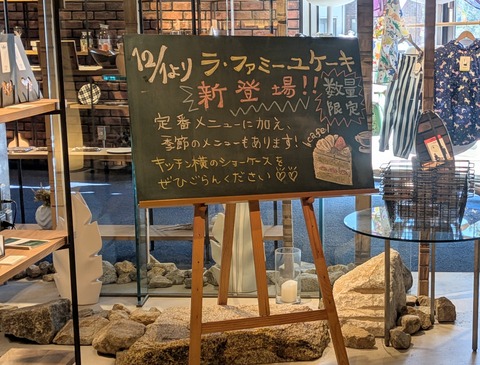 12/1より ラ・ファミーユケーキ
新登場!!
数量
限定
定番メニューに加え、
季節のメニューもあります!
キッチン横のショーケースを…
ぜひごらんください♡♡